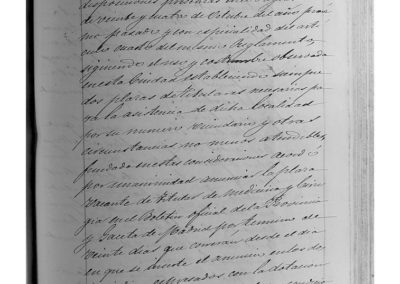 disposiciones
de veinte y cuatro de Octubre del año próxi
mo pasado y con especialidad del art
culo cuarto del mismo Reglamento,
siguiendo el uso y costumbre observada
en esta Ciudad estableciendo siempre
dos plazas de titulares necesarias pa
ra la asistencia de dicha localidad
por su numeroso vecindario y otras
circunstancias no menos atendibles,
fundada en estas consideraciones acordó
por unanimidad anunciar la plaza
vacante de titular de medicina y ciru
gia en el Boletin oficial de la Provincia
y Gaceta de Madrid por termino de
veinte dias que correrán desde el dia
en que se inserte el anuncio en los de
con la dotacion